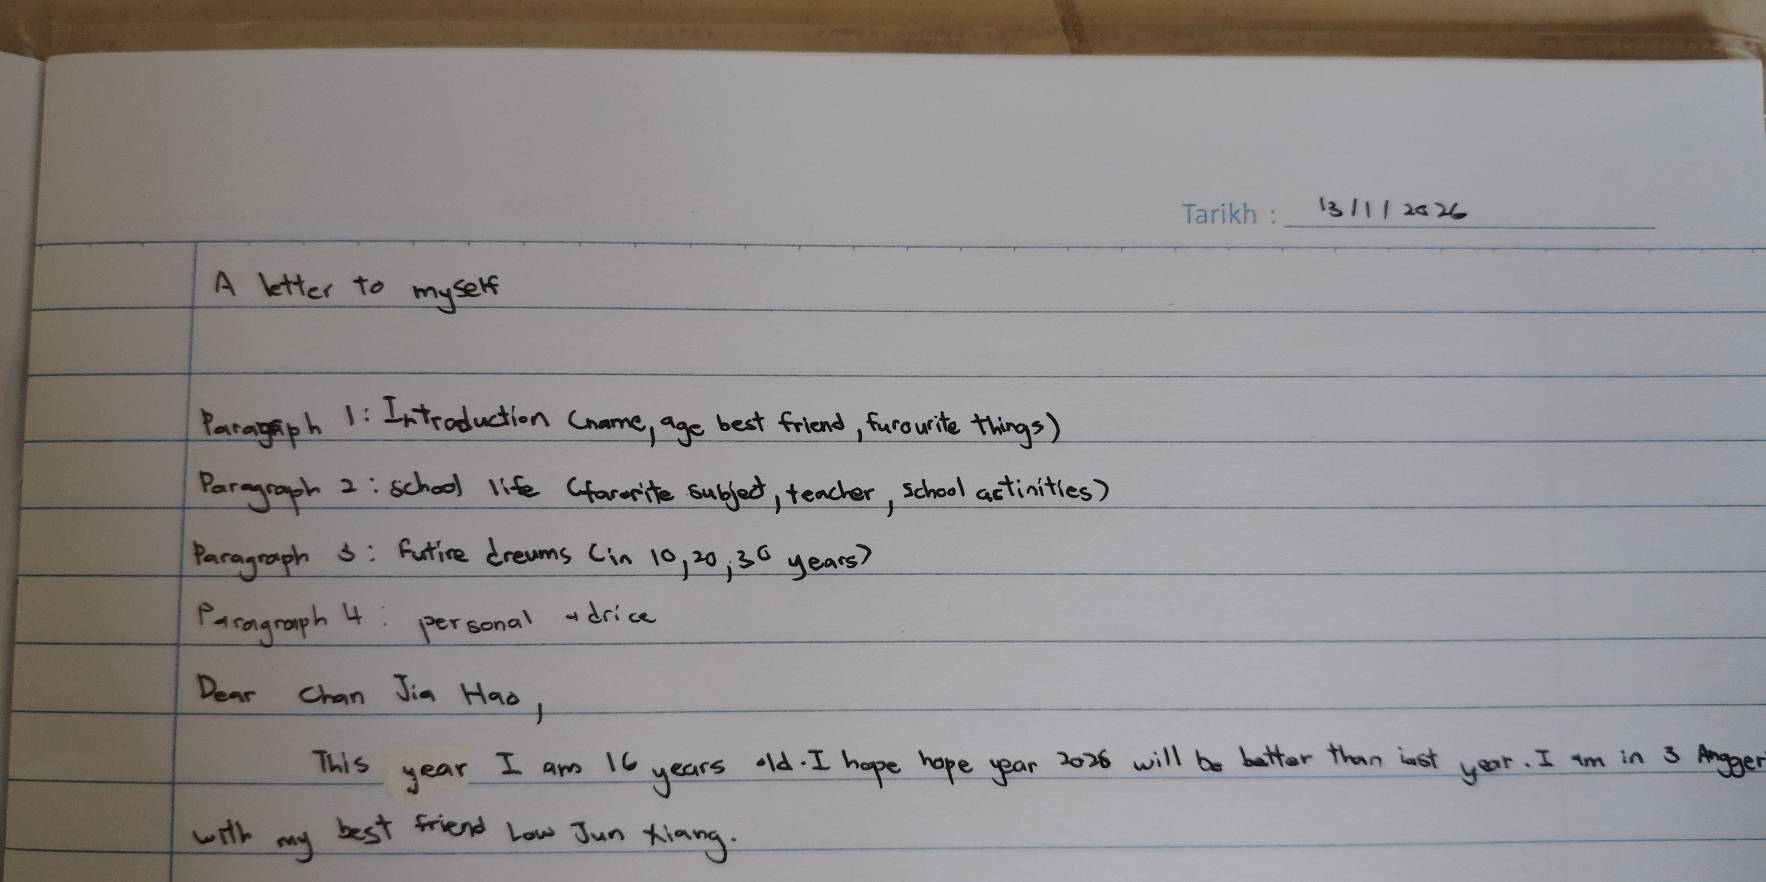 Tarikh : 13/1/2026
A letter to myself
Paragraph 1: Introduction (name, age best friend, furourite things)
Paragraph 2: school life (fararite subject, teacher, school actinities)
Paragraph 3: Futire dreums (in 10, 20, 30 years)
Paragraph 4: personal adrice
Dear Chan Jia Hao,
This year I am 16 years old. I hope hope year 2026 will be better than last year. I am in 3 Angger
with my best friend Low Jun Xiang.